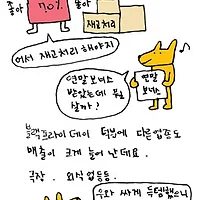 좋아 70% 좋아
재고처리
어서 재고처리 해야지
연말 보너스
받았는데 뭐
살까?
연말
보너스
블랙프라이데이 덕분에 다른 업종도
매출이 크게 늘어 난데요.
극장. 외식 업등등.
우와 싸게 득템했으니